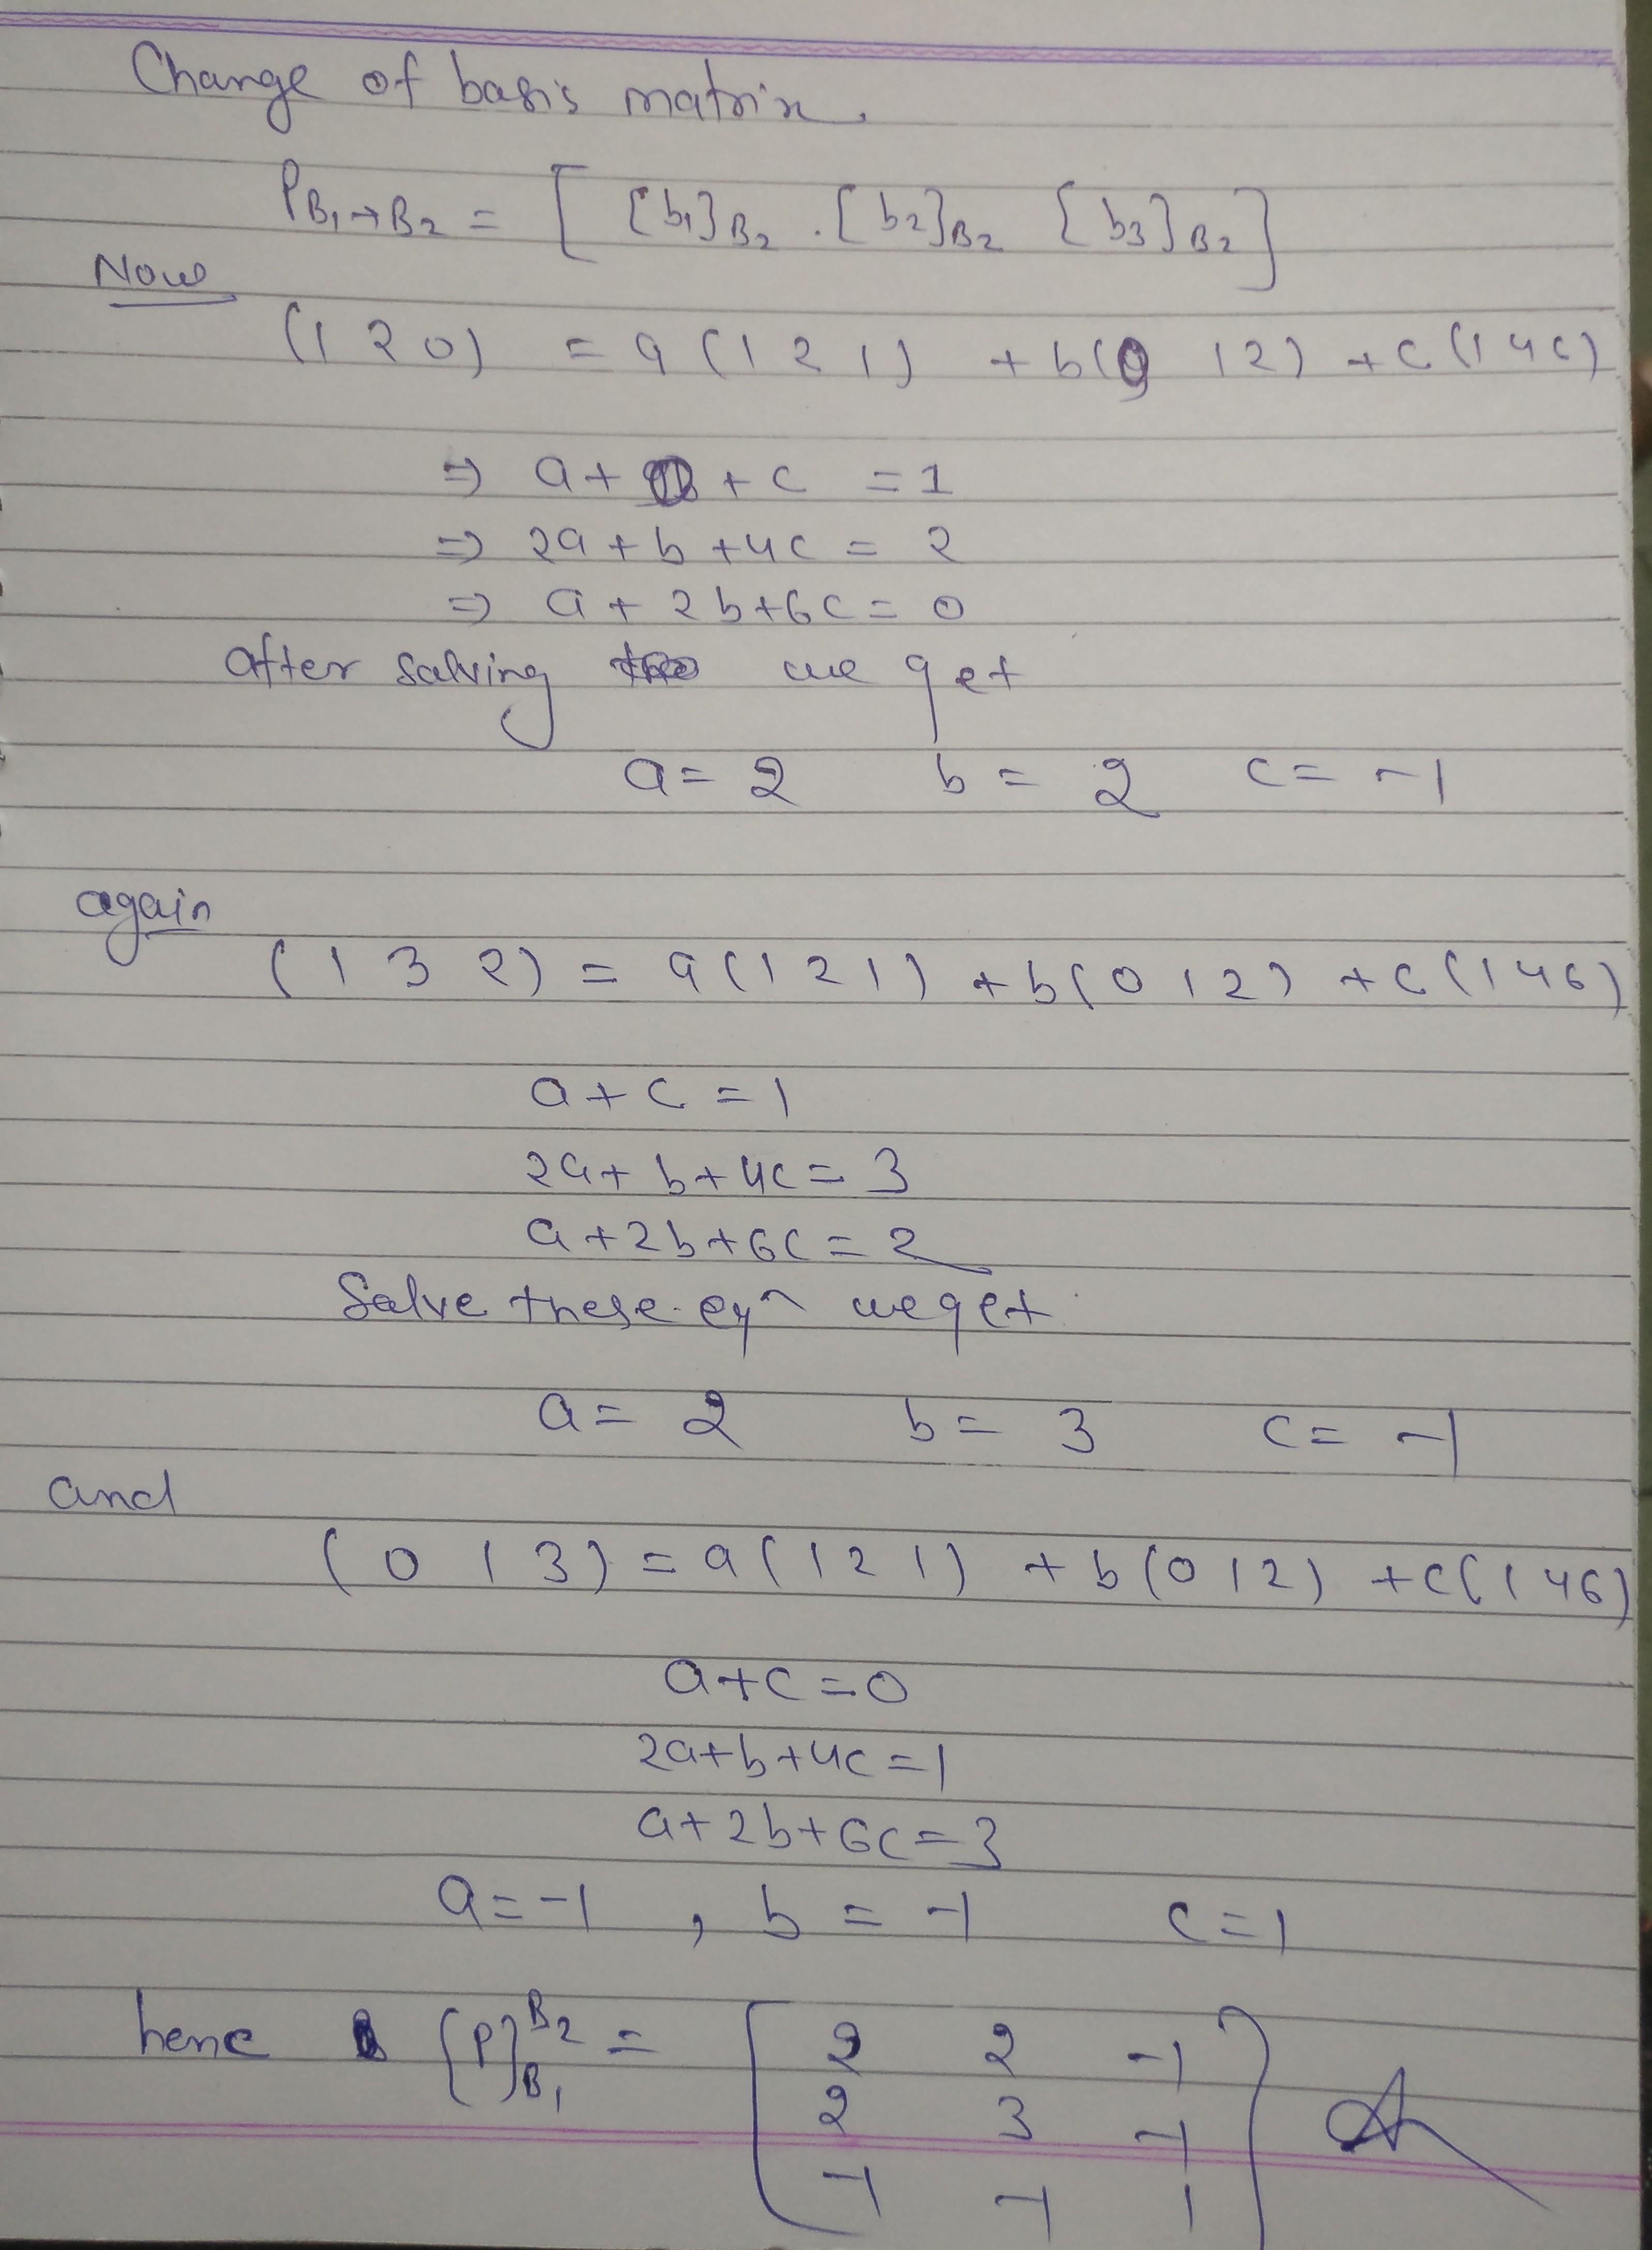 Change of basis matrix.
P B₁→B₂ = [ [b₁]B₂ . [b₂]B₂ [b₃]B₂ ]
Now
(1 2 0) = a (1 2 1) + b(0 1 2) + c (1 4 6)
⇒ a + + c = 1
⇒ 2a + b + 4c = 2
⇒ a + 2b + 6c = 0
after solving we get
a = 2 b = 2 c = -1
again
(1 3 2) = a (1 2 1) + b (0 1 2) + c (1 4 6)
a + c = 1
2a + b + 4c = 3
a + 2b + 6c = 2
Solve these eqn we get
a = 2 b = 3 c = -1
and
(0 1 3) = a (1 2 1) + b (0 1 2) + c (1 4 6)
a + c = 0
2a + b + 4c = 1
a + 2b + 6c = 3
a = -1 , b = -1 c = 1
henc [P]B₁^B₂ = [ 2 2 -1
2 3 -1
-1 -1 1 ]